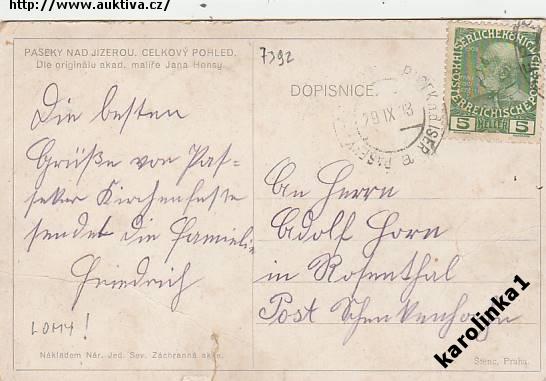 http://www.auktiva.cz/
PASEKY NAD JIZEROU. CELKOVÝ POHLED.
Dle originálu akad. malíře Jana Honsy.
7392
DOPISNICE.
KAISERLICHE KÖNIGL
ÖSTERREICHISCHE POST
5 HELLER 5
29 IX 13
Die besten
Grüße von Pas-
seker Kirchenfeste
sendet die Familie
Friedrich
LOMY!
An Herrn
Adolf Horn
in Rosenthal
Post Schenkenhahn
Nákladem Nár. Jed. Sev. Záchranná akce.
Štenc, Praha.
karolinka1